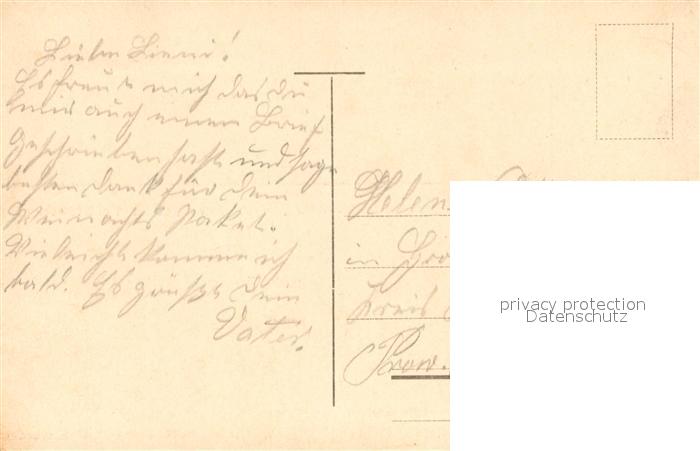 Lieber Lieni!
Es freut mich das du
mir auch einen Brief
geschrieben hast und sage
besten dank für dein
Weinachts Paket.
Vieleicht komme ich
bald. Es grüßt dein
Vater.
Helen
in Gro
Kreis
Prov.
privacy protection
Datenschutz